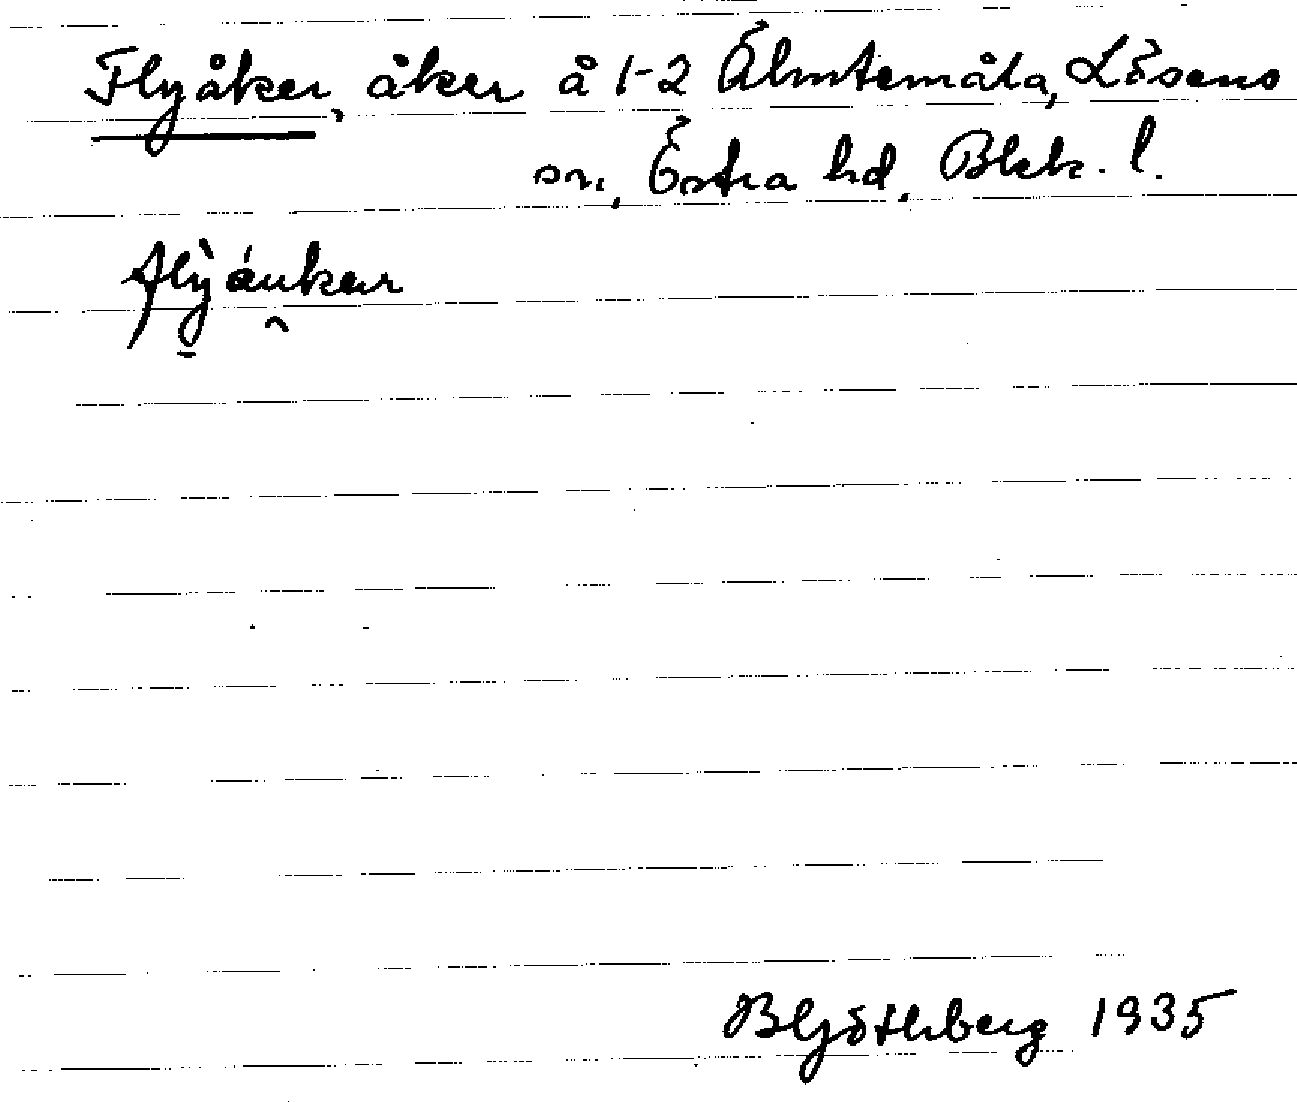 Flyåker, åker å 1-2 Älmtemåla, Lösens
sn., Östra hd, Blek. l.
flỳáukər
B Ljöthberg 1935